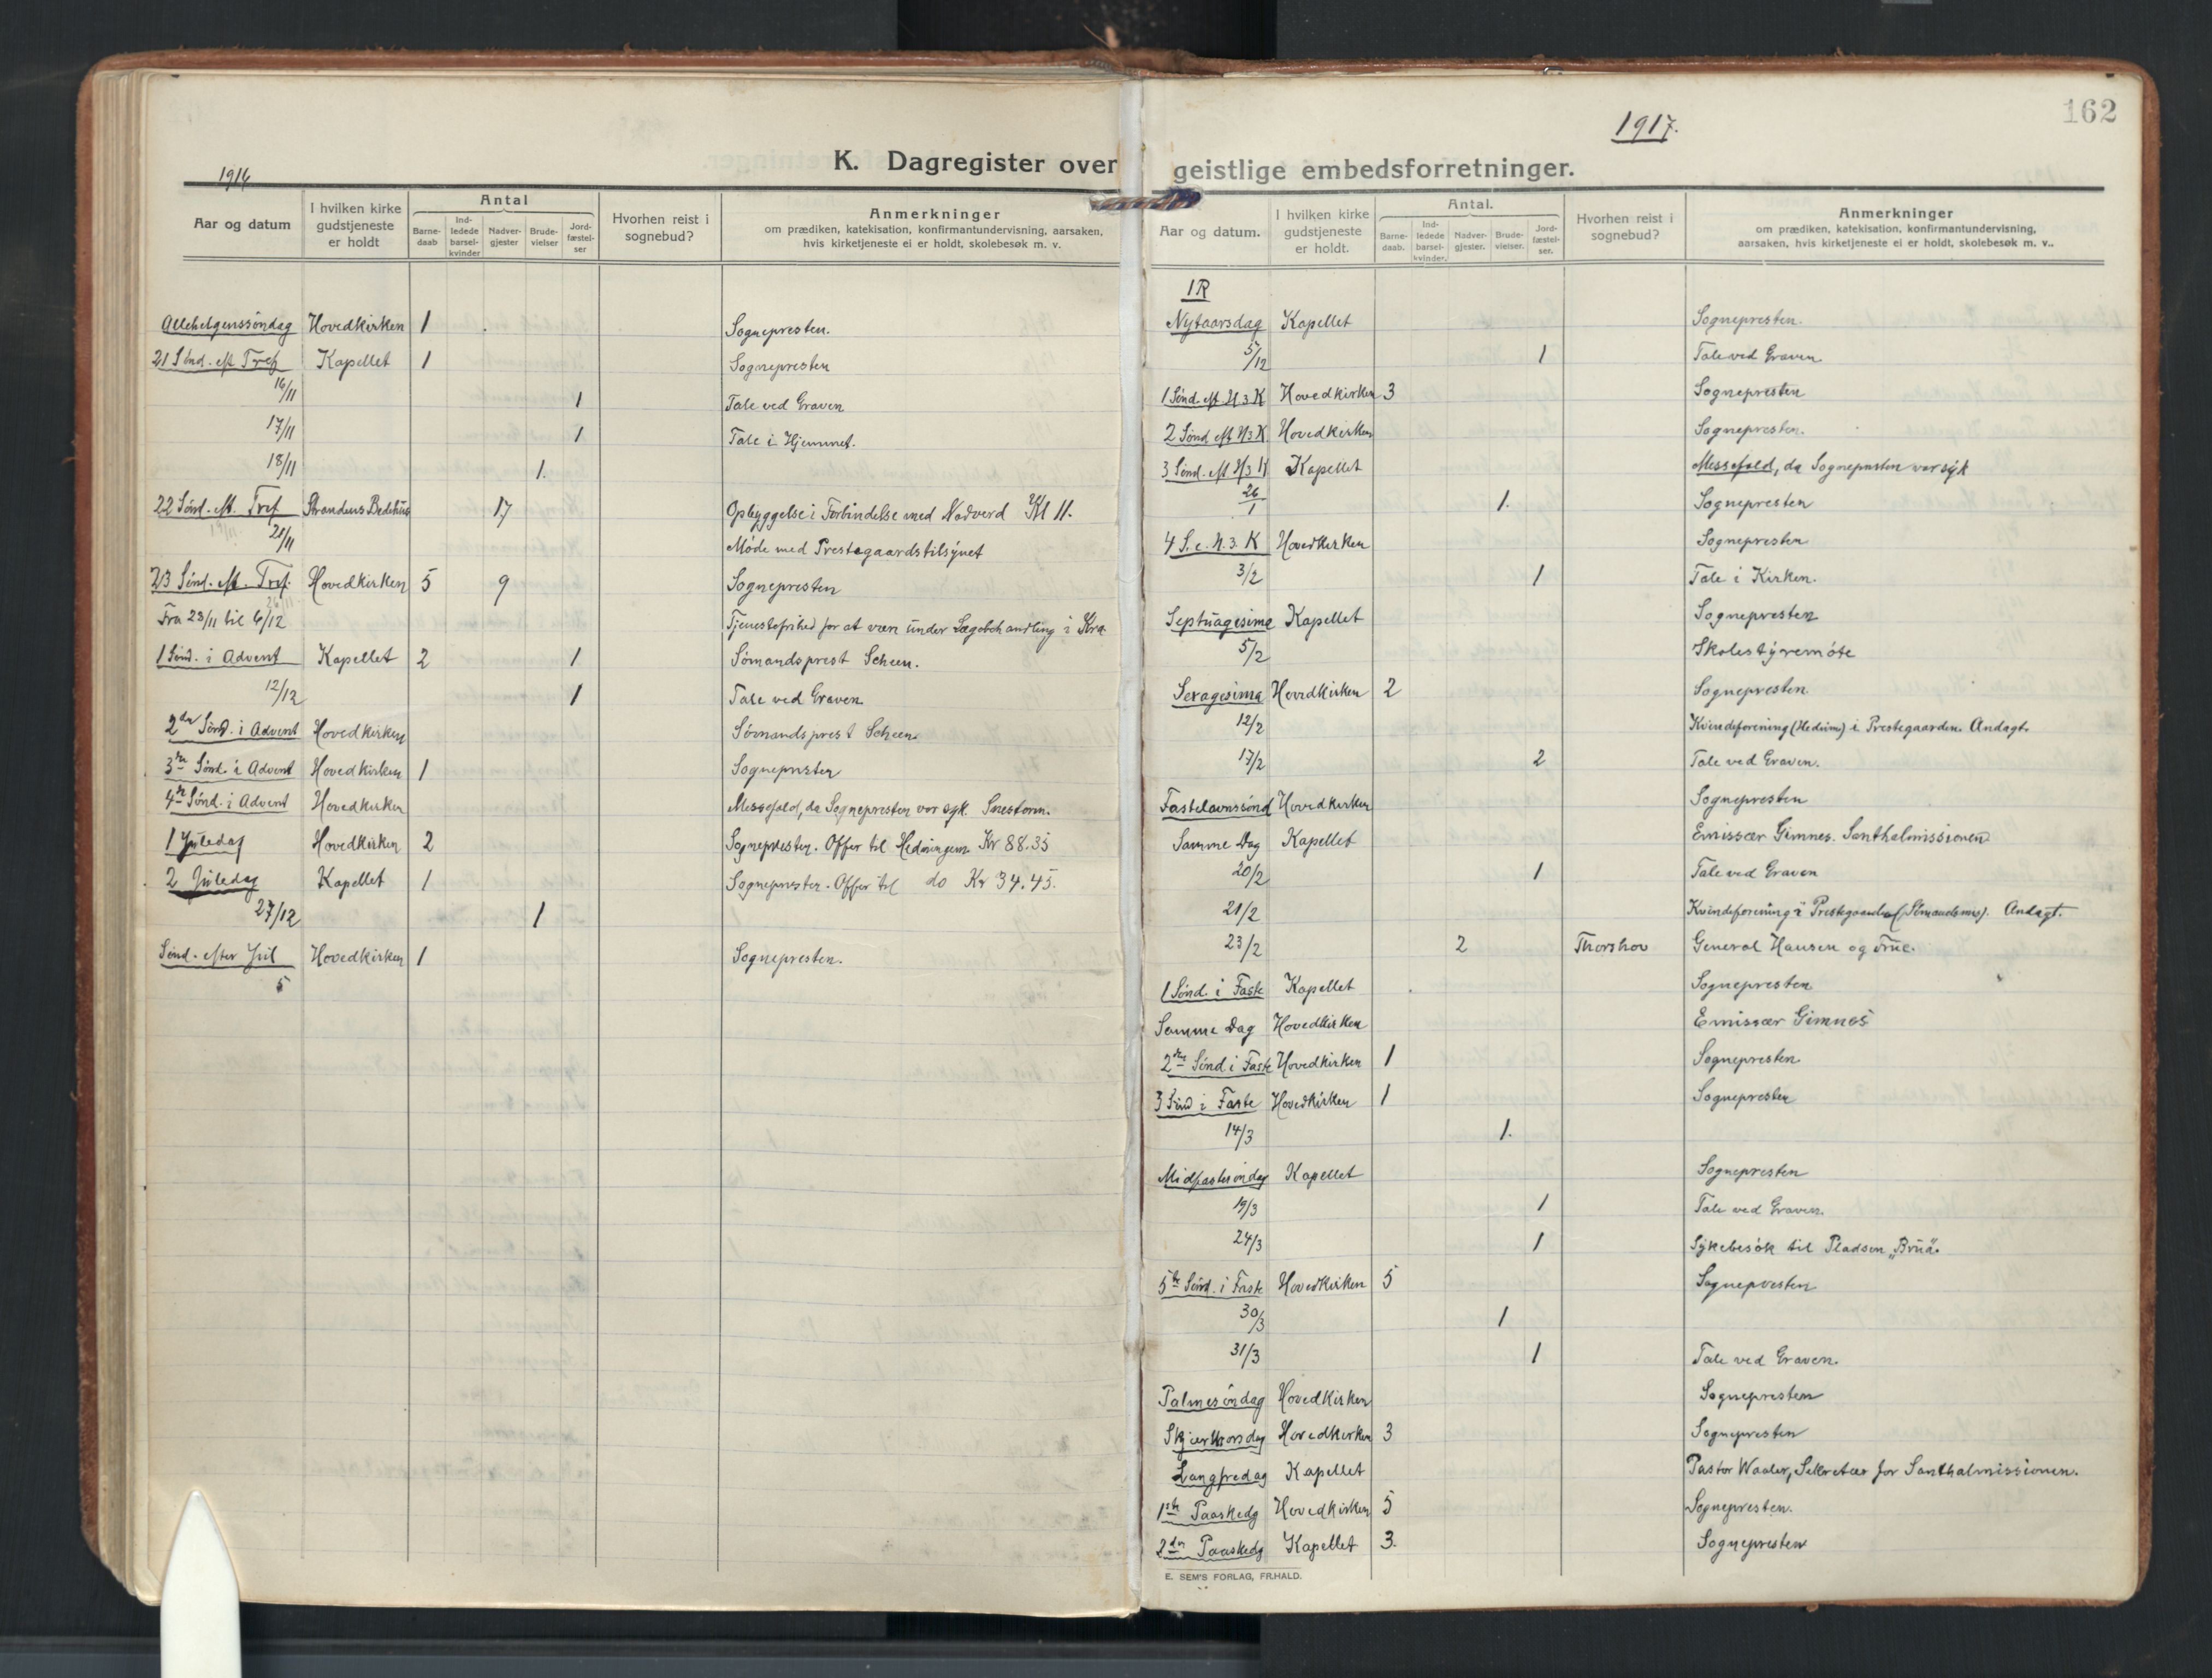 162
1917.
1916
K. Dagregister over geistlige embedsforretninger.
Aar og datum
I hvilken kirke gudstjeneste er holdt
Antal
Barne-daab
Ind-ledede barsel-kvinder
Nadver-gjester
Brude-vielser
Jord-fæstel-ser
Hvorhen reist i sognebud?
Anmerkninger
om prædiken, katekisation, konfirmantundervisning, aarsaken,
hvis kirketjeneste ei er holdt, skolebesøk m. v.
Allehelgenssøndag Hovedkirken 1 Sognepresten.
21 Sønd. eft Tref Kapellet 1 Sognepresten
16/11 1 Tale ved Graven
17/11 1 Tale i Hjemmet.
18/11 1.
22 Sønd. eft. Tref Strandens Bedehus 17 Opbyggelse i Forbindelse med Nadverd Kl 11.
21/11 Møde med Prestegaardstilsynet
23 Sønd. eft. Tref. Hovedkirken 5 9 Sognepresten
Fra 23/11 til 6/12 Tjenestefrihed for at være under Lægebehandling i Kra.
1 Sønd. i Advent Kapellet 2 1 Sømandsprest Scheen.
12/12 1 Tale ved Graven.
2den Sønd. i Advent Hovedkirken Sømandsprest Scheen.
3die Sønd. i Advent Hovedkirken 1 Sognepresten
4de Sønd. i Advent Hovedkirken Messefald, da Sognepresten var syk. Snestorm.
1 Juledag Hovedkirken 2 Sognepresten. Offer til Hedningem. Kr 88.35
2 Juledag Kapellet 1 Sognepresten. Offer til do Kr 34.45.
27/12 1
Sønd. efter Jul Hovedkirken 1 Sognepresten.
5
Aar og datum.
I hvilken kirke gudstjeneste er holdt.
Antal.
Barne-daab.
Ind-ledede barsel-kvinder.
Nadver-gjester.
Brude-vielser.
Jord-fæstel-ser.
Hvorhen reist i sognebud?
Anmerkninger
om prædiken, katekisation, konfirmantundervisning,
aarsaken, hvis kirketjeneste ei er holdt, skolebesøk m. v..
1R
Nytaarsdag Kapellet Sognepresten.
5/12 1 Tale ved Graven.
1 Sønd. eft. H 3 K Hovedkirken 3 Sognepresten
2 Sønd eft H3 K Hovedkirken Sognepresten.
3 Sønd. eft H3 K Kapellet Messefald, da Sognepresten var syk
26/1 1. Sognepresten
4 S. e. H. 3. K Hovedkirken Sognepresten
3/2 1 Tale i Kirken.
Septuagesima Kapellet Sognepresten
5/2 Skolestyremøte
Sexagesima Hovedkirken 2 Sognepresten
12/2 Kvindeforening (Hednm) i Prestegaarden. Andagt.
17/2 2 Tale ved Graven.
Fastelavnssønd Hovedkirken Sognepresten
Samme Dag Kapellet Emissær Gimnes. Santhalmissionen
20/2 1 Tale ved Graven
21/2 Kvindeforening i Prestegaarden (Sømandsmis). Andagt.
23/2 2 Thorshov General Hansen og Frue.
1 Sønd. i Faste Kapellet Sognepresten
Samme Dag Hovedkirken Emissær Gimnes
2den Sønd i Faste Hovedkirken 1 Sognepresten
3 Sønd i Faste Hovedkirken 1 Sognepresten
14/3 1.
Midfastesøndag Kapellet Sognepresten
19/3 1 Tale ved Graven.
24/3 1 Sykebesøk til Pladsen „Brua".
5te Sønd. i Faste Hovedkirken 5 Sognepresten
30/3 1
31/3 1 Tale ved Graven.
Palmesøndag Hovedkirken Sognepresten
Skjærtorsdag Hovedkirken 3 Sognepresten
Langfredag Kapellet Pastor Waaler, Sekretær for Santhalmissionen.
1ste Paaskedg Hovedkirken 5 Sognepresten.
2den Paaskedg Kapellet 3. Sognepresten
E. SEM'S FORLAG, FR.HALD.